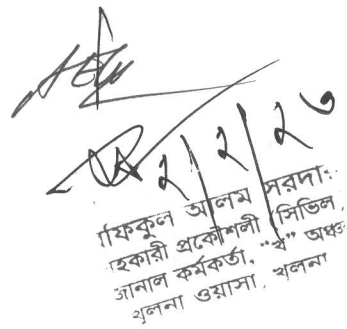 ২/২/২৩
ফিকুল আলম সরদা
হকারী প্রকৌশলী (সিভিল
জোনাল কর্মকর্তা, “খ” অঞ্চ
খুলনা ওয়াসা, খুলনা